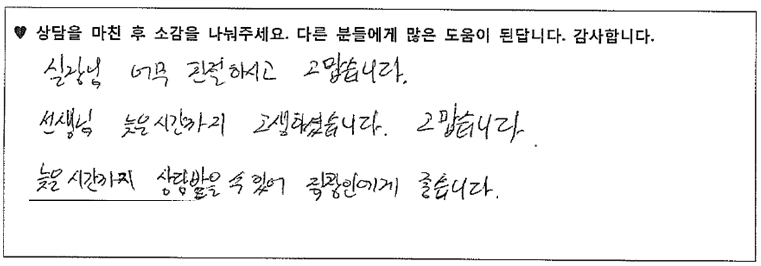 ♥ 상담을 마친 후 소감을 나눠주세요. 다른 분들에게 많은 도움이 된답니다. 감사합니다.
실장님 너무 친절하시고 고맙습니다.
선생님 늦은 시간까지 고생하셨습니다. 고맙습니다.
늦은 시간까지 상담받을 수 있어 직장인에게 좋습니다.